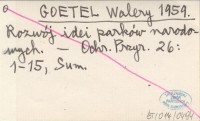 GOETEL Walery 1959.
Rozwój idei parków narodo-
wych. — Ochr. Przyr. 26:
1-15, Sum.